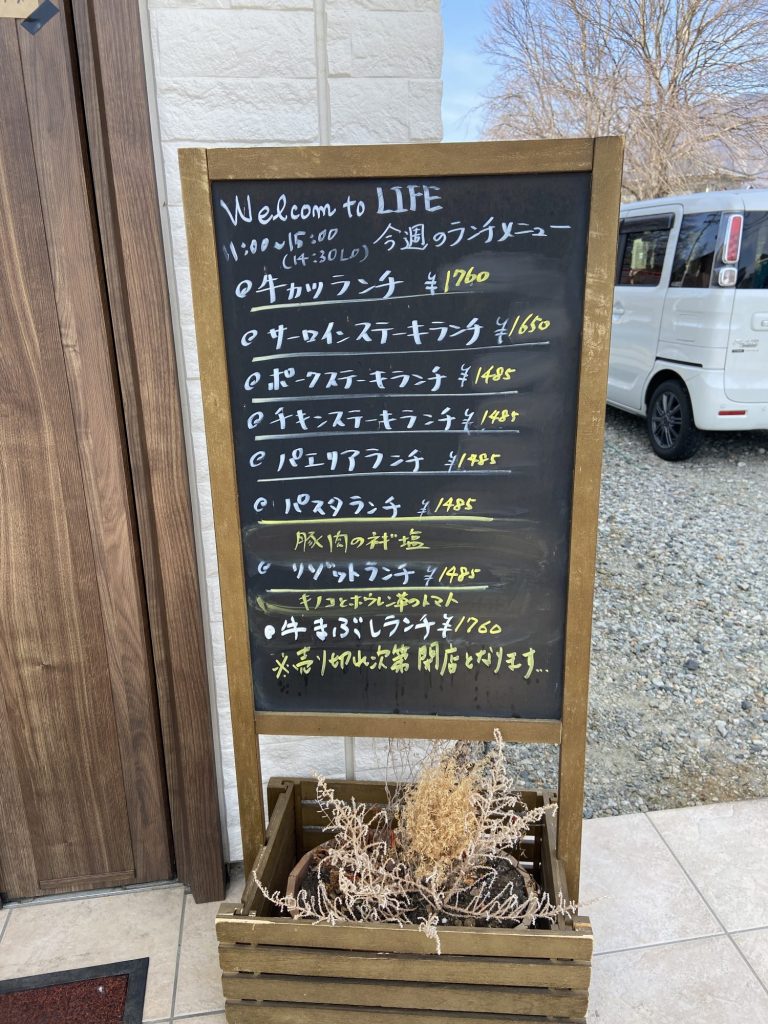 Welcom to LIFE
11:00~15:00 今週のランチメニュー
(14:30LO)
牛カツランチ ¥1760
サーロインステーキランチ ¥1650
ポークステーキランチ ¥1485
チキンステーキランチ ¥1485
パエリアランチ ¥1485
パスタランチ ¥1485
豚肉のネギ塩
リゾットランチ ¥1485
キノコとホウレン草のトマト
牛まぶしランチ ¥1760
※売り切れ次第閉店となります...